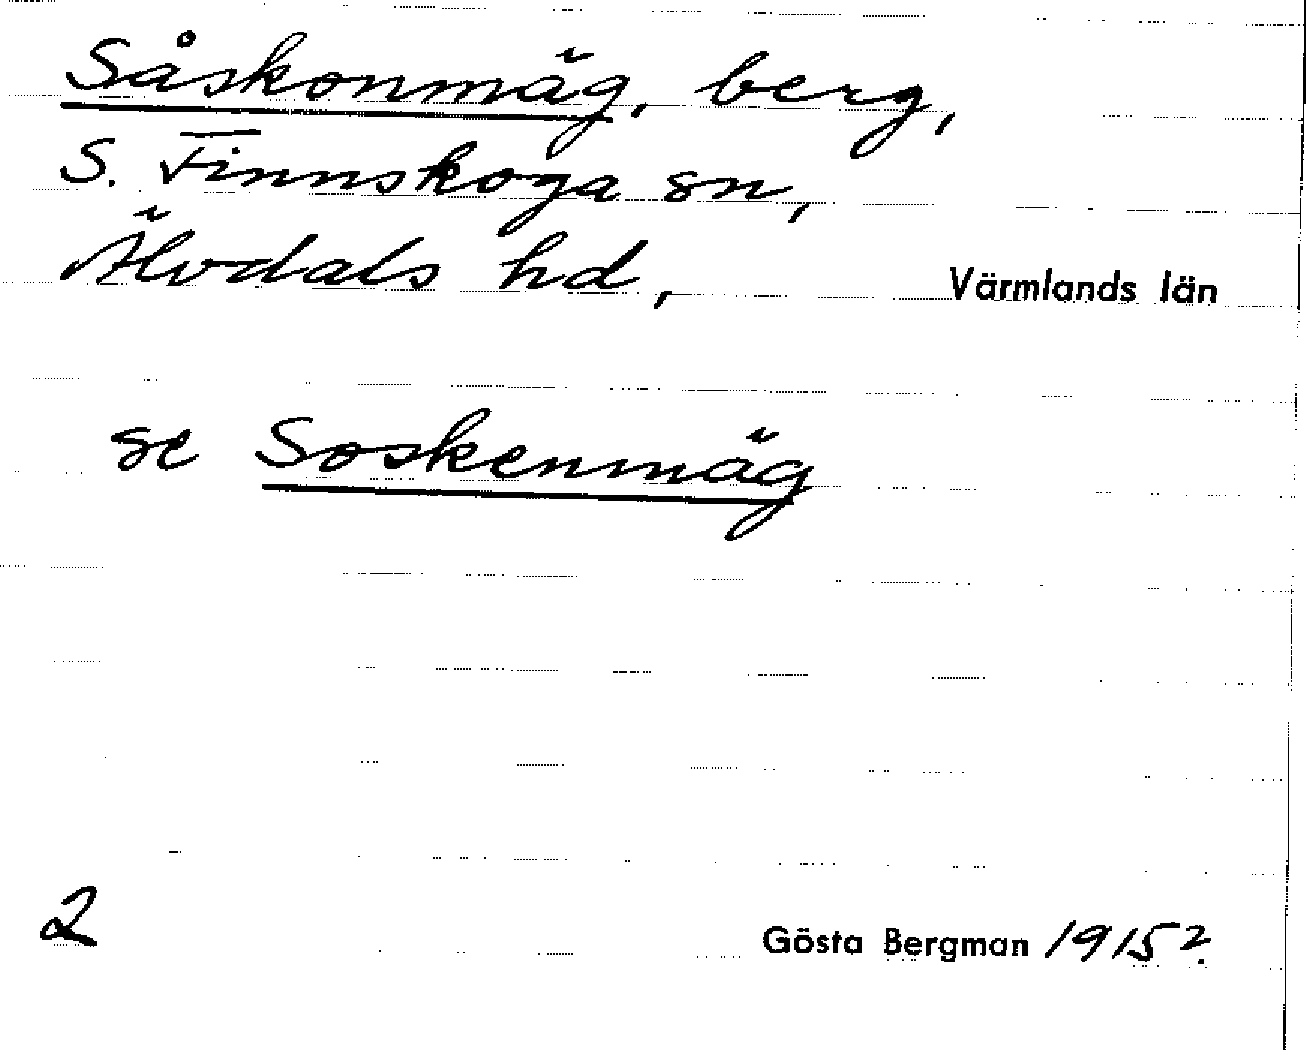 Såskonmäg, berg,
S. Finnskoga sn,
Älvdals hd, Värmlands län
se Soskenmäg
2
Gösta Bergman 1915?